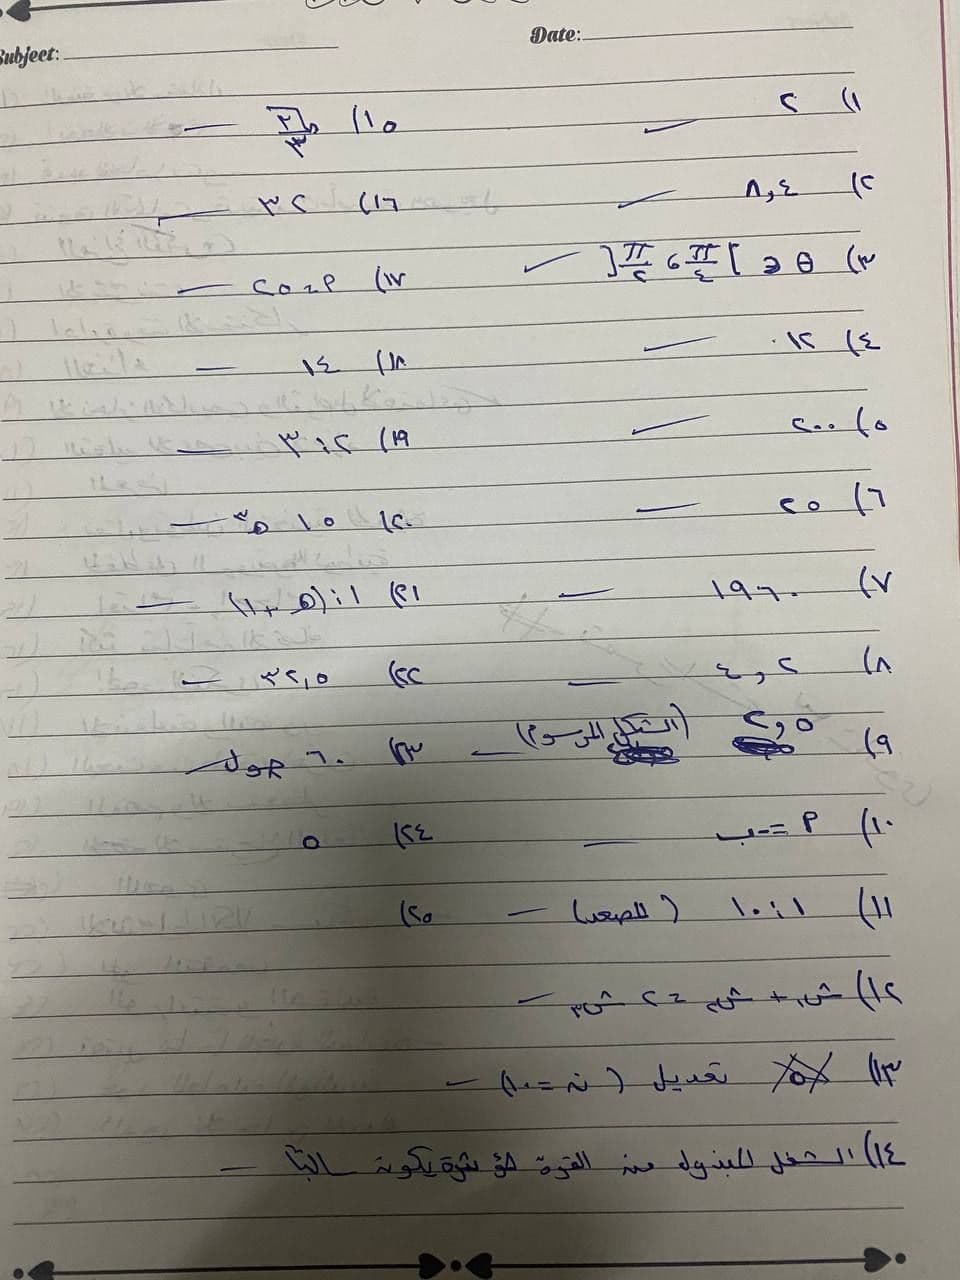 Subject:
Date:
١) ٢
٢) ٨,٤
٣) θ ∈ ]π/٤ , π/٢[
٤) ١٢
٥) ٢٠٠
٦) ٢٥
٧) ١٩٦٠
٨) ٤,٢
٩) ٢,٥ (الشكل المرسوم)
١٠) أ = -ب
١١) ١٠:١ (للصعب)
١٢) ش١ + ش٢ = ٢ ش٣
١٣) تعديل (نه = ١٠)
١٤) الشغل المبذول من القوة المؤثرة يكون سالباً
١٥) √٢/٣
١٦) ٣٢
١٧) أ = ٢٥
١٨) ١٤
١٩) ٣:٢
٢٠) ١٥ هـ٣
٢١) ١:(هـ+١)
٢٢) ٣٢,٥
٢٣) ٦٠ جول
٢٤) ٥
٢٥)